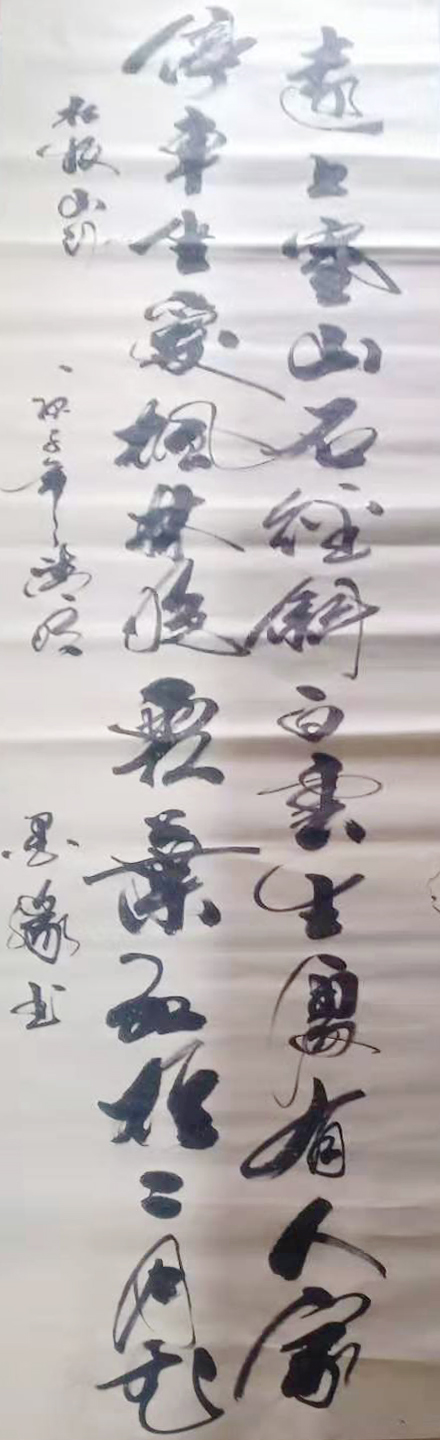 遠上寒山石徑斜白雲生處有人家
停車坐愛楓林晚霜葉紅於二月花
杜牧山行 子年 墨緣书